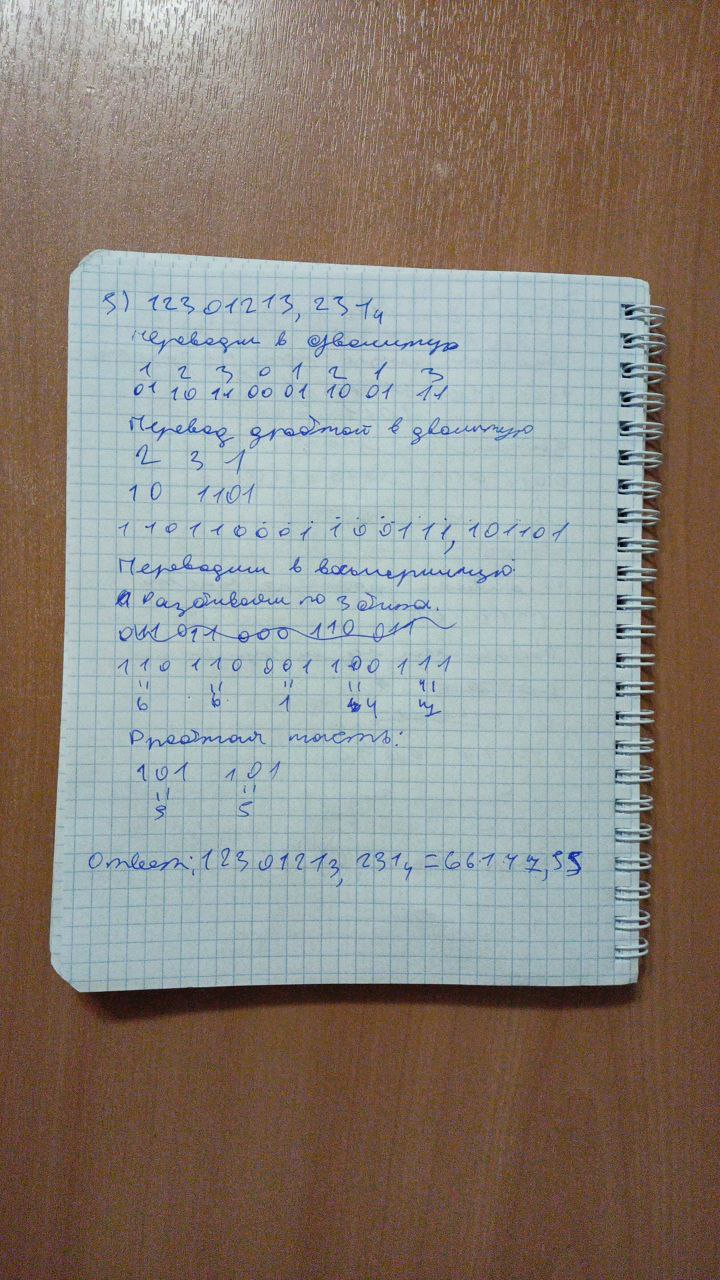 3) 12301213,231₄
Переводим в двоичную
1 2 3 0 1 2 1 3
01 10 11 00 01 10 01 11
Перевод дробной в двоичную
2 3 1
10 1101
110110001100111,101101
Переводим в восьмеричную
Разбиваем по 3 бита.
011 011 000 110 011
110 110 001 100 111
6 6 1 4 7
Дробная часть:
101 101
5 5
Ответ: 12301213,231₄ = 66147,55